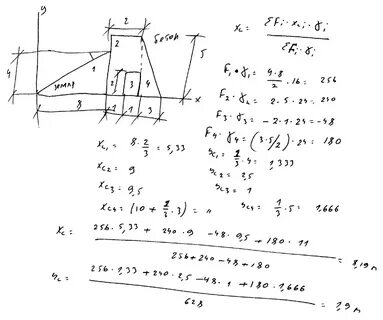 y
2
бетон
2
5
1
4
земля
2
3
4
x
8
1
1
3
x_c = ΣF_i · x_i · γ_i / ΣF_i · γ_i
F_1 · γ_1 = 4·8/2 · 16 = 256
F_2 · γ_2 = 2 · 5 · 24 = 240
F_3 · γ_3 = - 2 · 1 · 24 = -48
F_4 · γ_4 = (3·5/2) · 24 = 180
x_c1 = 8 · 2/3 = 5,33
y_c1 = 1/3 · 4 = 1,333
x_c2 = 9
y_c2 = 2,5
x_c3 = 9,5
y_c3 = 1
x_c4 = (10 + 1/3 · 3) = 11
y_c4 = 1/3 · 5 = 1,666
x_c = 256 · 5,33 + 240 · 9 - 48 · 9,5 + 180 · 11 / 256 + 240 - 48 + 180 = 8,19 м
y_c = 256 · 1,33 + 240 · 2,5 - 48 · 1 + 180 · 1,666 / 628 = 1,9 м